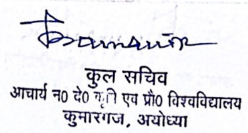 कुल सचिव
आचार्य न० दे० कृषि एवं प्रौ० विश्वविद्यालय
कुमारगंज, अयोध्या